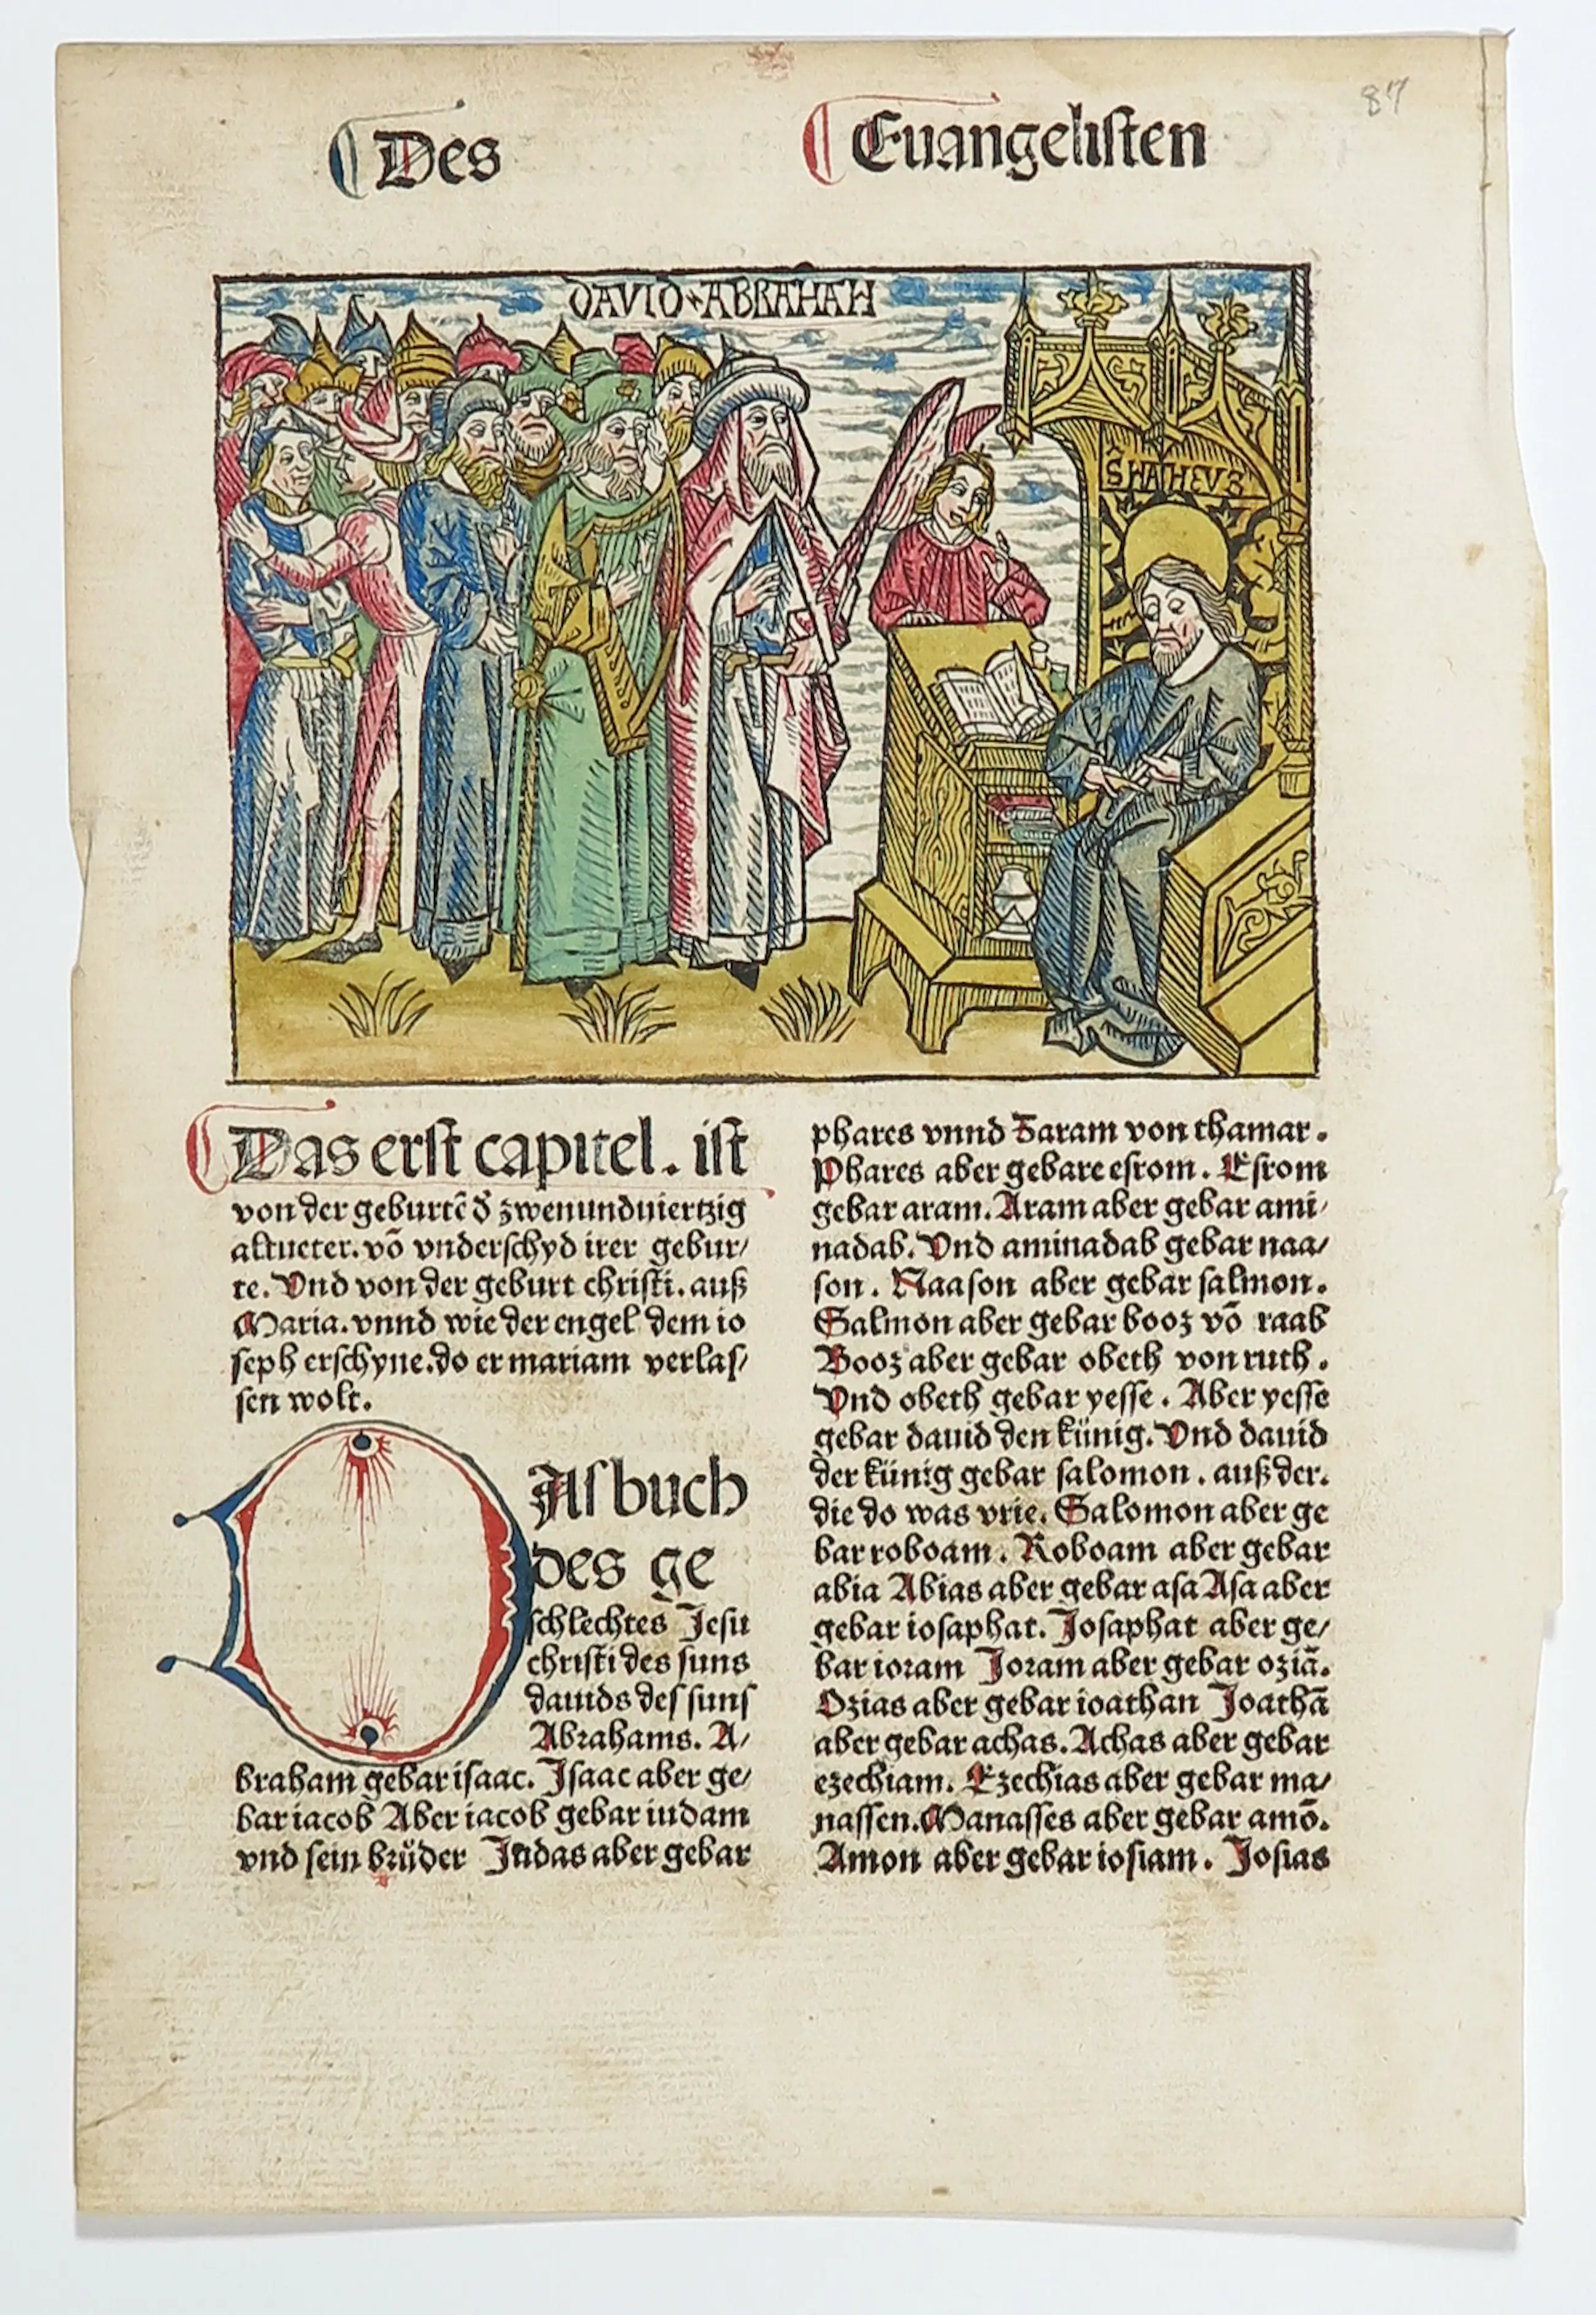 87
Des Euangelisten
DAVID ABRAHAH
S MATHEVS
Das erst capitel. ist
von der geburtē ð zwenundviertzig
altueter. vō vnderschyd irer gebur/
te. Vnd von der geburt christi. auß
Maria. vnnd wie der engel dem io
seph erschyne. do er mariam verlas/
sen wolt.
DAs buch
des ge
schlechtes Jesu
christi des suns
dauids des suns
Abrahams. A/
braham gebar isaac. Isaac aber ge/
bar iacob Aber iacob gebar iudam
vnd sein brůder Judas aber gebar
phares vnnd Zaram von thamar.
Phares aber gebare esrom. Esrom
gebar aram. Aram aber gebar ami/
nadab. Vnd aminadab gebar naa/
son. Naason aber gebar salmon.
Salmon aber gebar booz vō raab
Booz aber gebar obeth von ruth.
Vnd obeth gebar yesse. Aber yesse
gebar dauid den künig. Vnd dauid
der künig gebar salomon. auß der.
die do was vrie. Salomon aber ge
bar roboam. Roboam aber gebar
abia Abias aber gebar asa Asa aber
gebar iosaphat. Josaphat aber ge/
bar ioram Joram aber gebar oziā.
Ozias aber gebar ioathan Joathā
aber gebar achas. Achas aber gebar
ezechiam. Ezechias aber gebar ma/
nassen. Manasses aber gebar amō.
Amon aber gebar iosiam. Josias